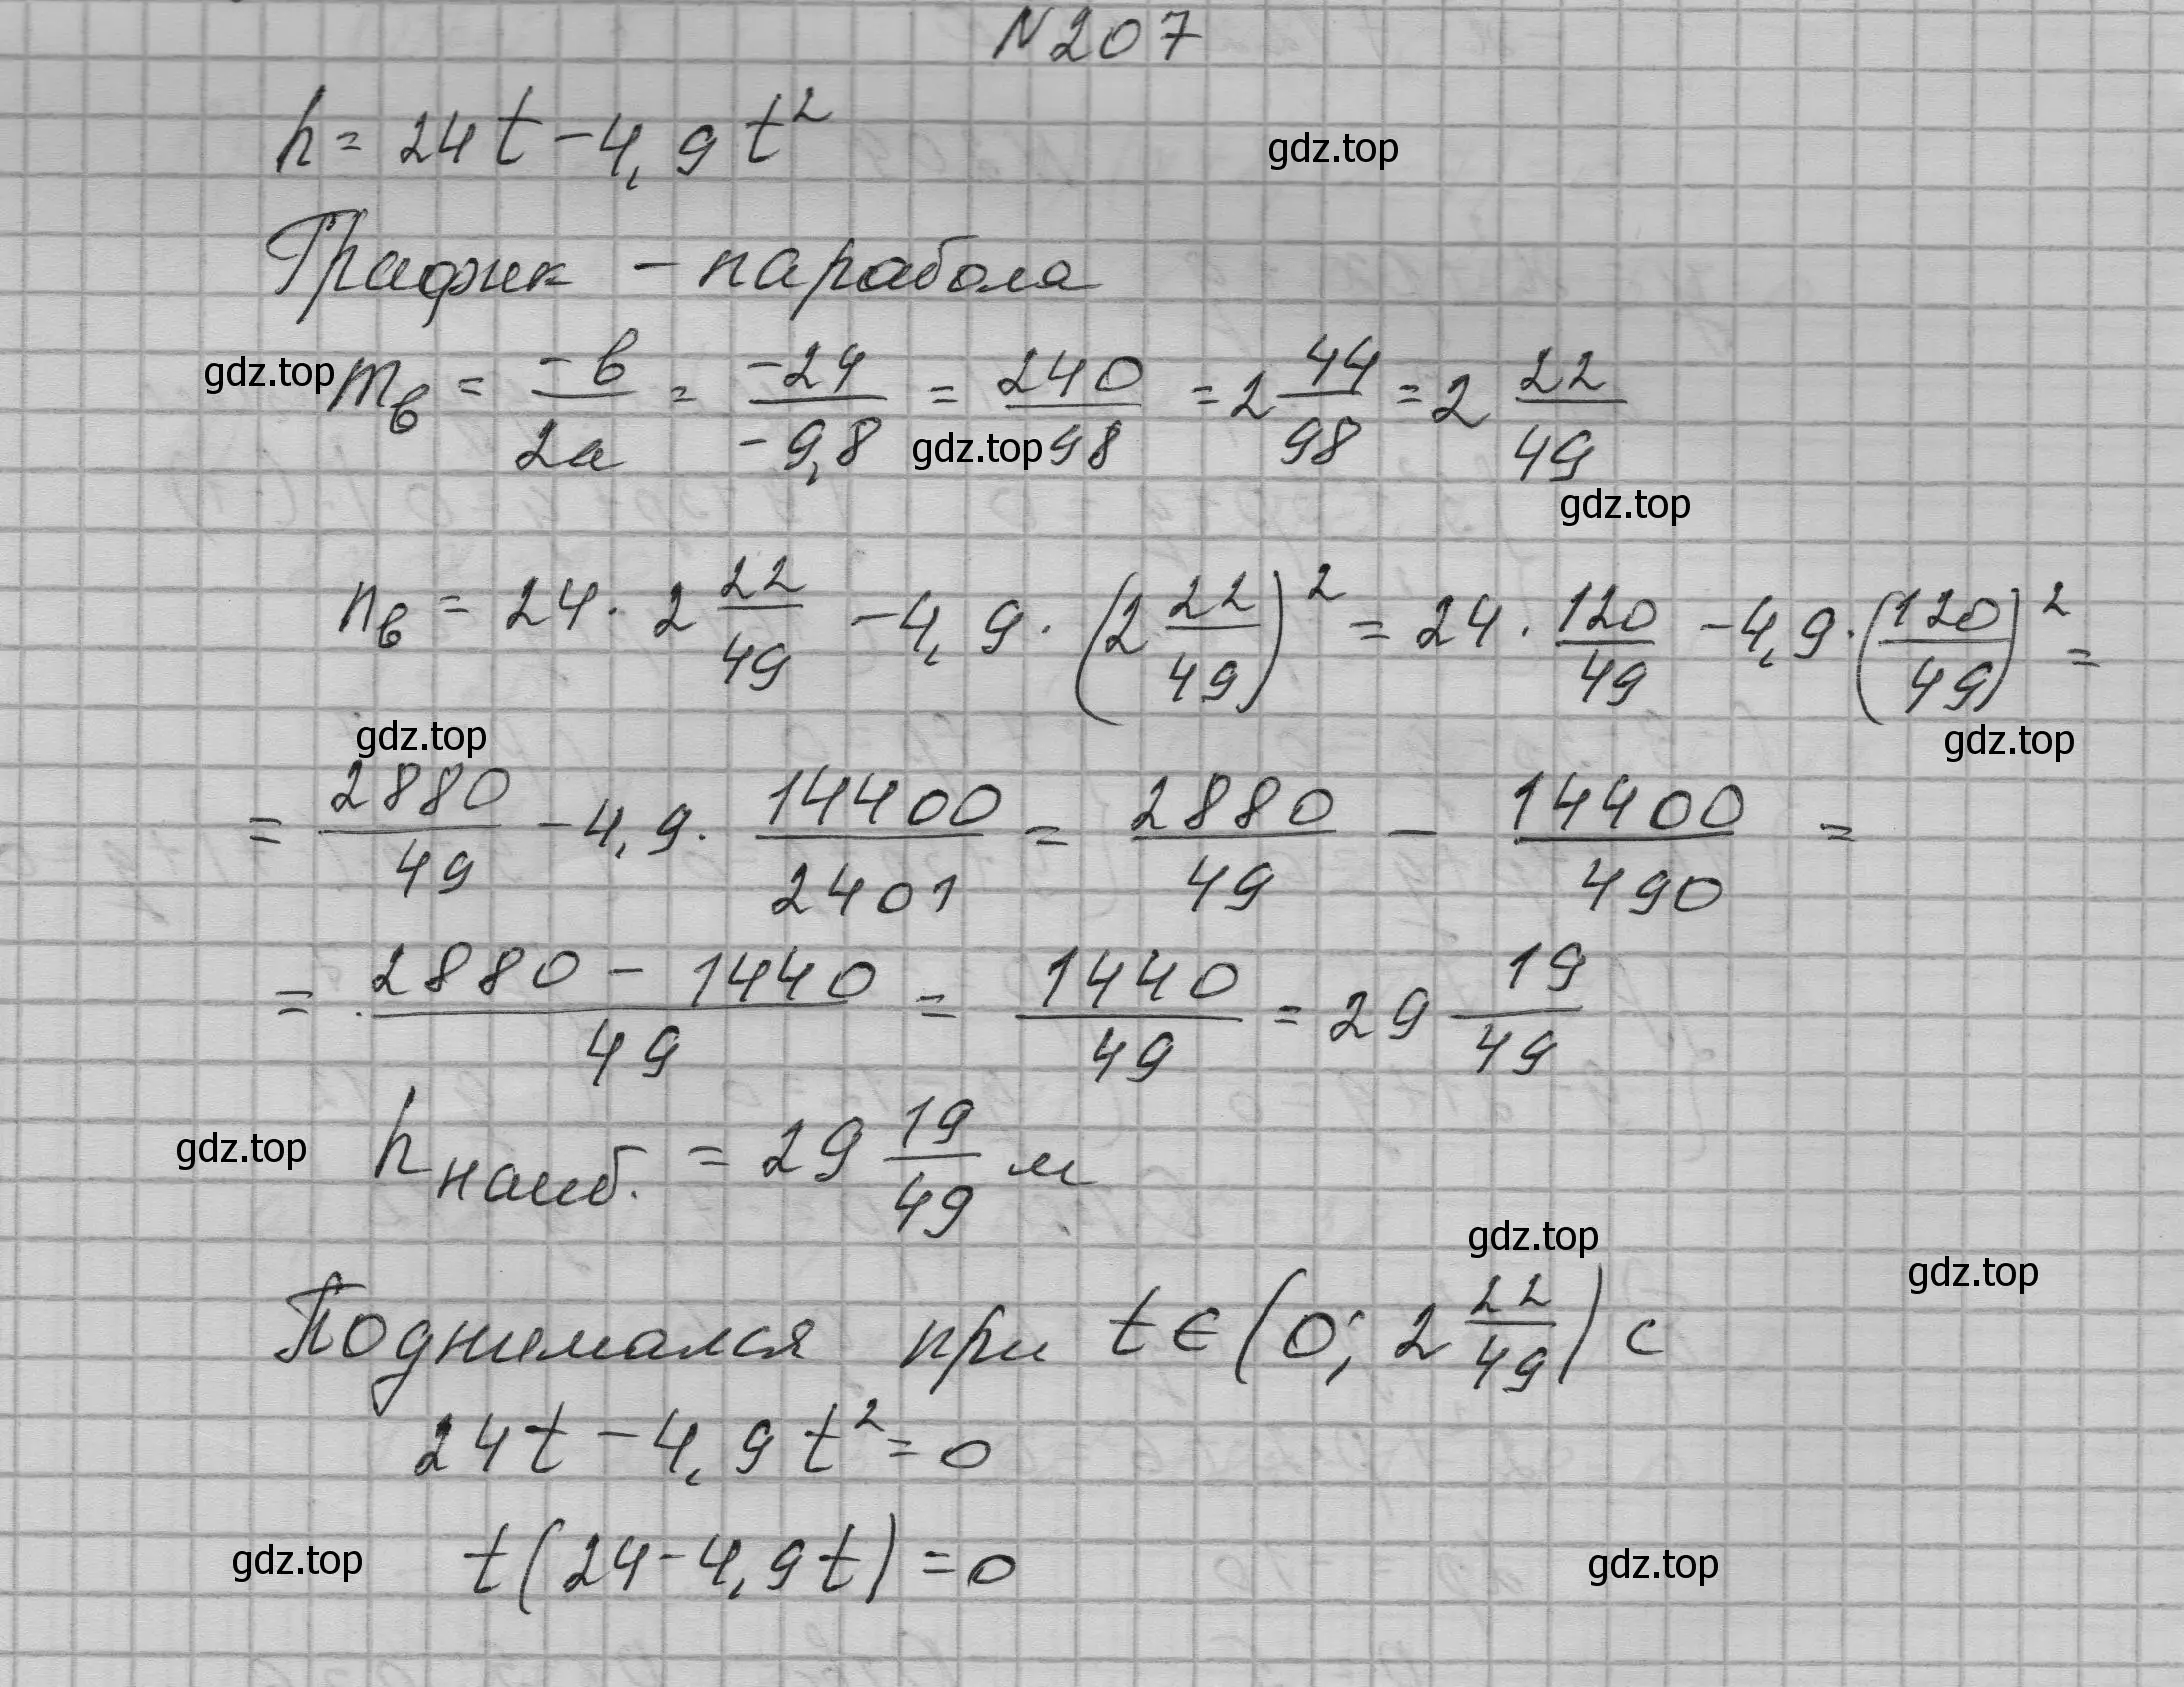 N 207
h = 24t - 4,9t²
gdz.top
График - парабола
gdz.top m_в = -b/2a = -24/-9,8 = 240/98 = 2 44/98 = 2 22/49
gdz.top
gdz.top
n_в = 24 · 2 22/49 - 4,9 · (2 22/49)² = 24 · 120/49 - 4,9 · (120/49)² =
gdz.top
gdz.top
= 2880/49 - 4,9 · 14400/2401 = 2880/49 - 14400/490 =
= 2880 - 1440/49 = 1440/49 = 29 19/49
gdz.top h_наиб. = 29 19/49 м
gdz.top
gdz.top
Поднимался при t∈(0; 2 22/49) с
24t - 4,9t² = 0
gdz.top t(24 - 4,9t) = 0 gdz.top